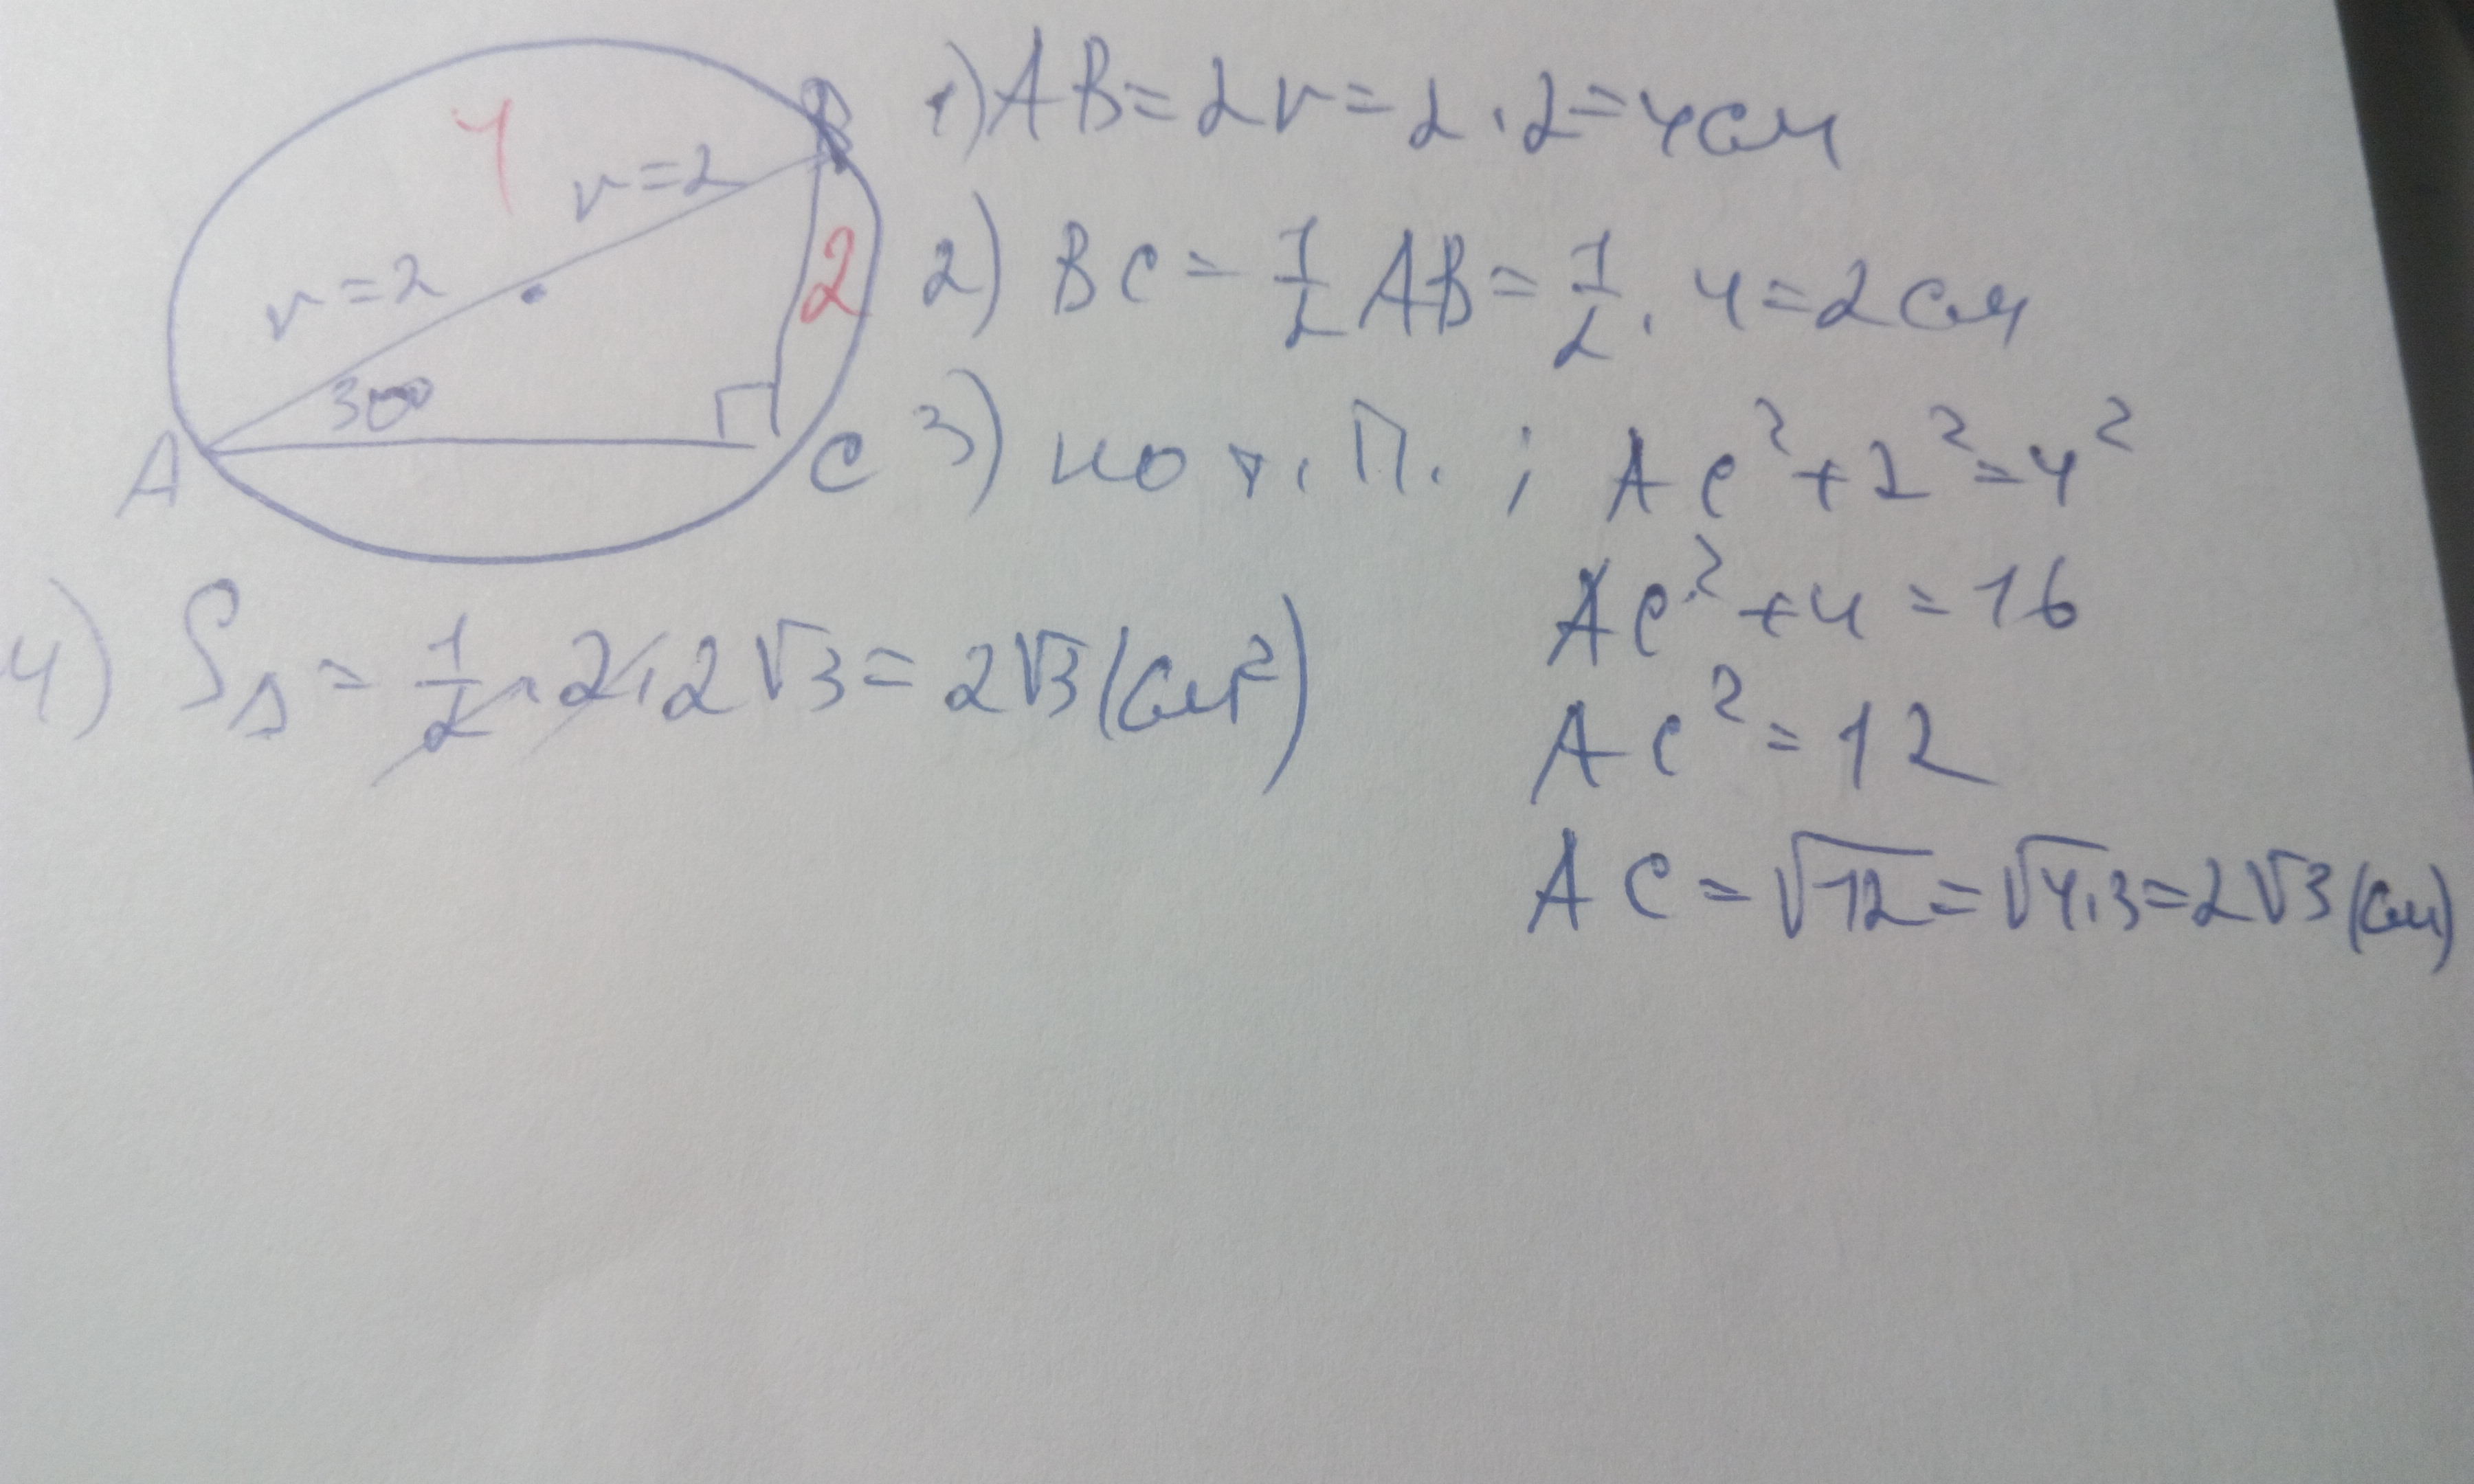 4
B
r=2
r=2
2
30°
A
C
1) AB=2r=2·2=4см
2) BC=1/2 AB=1/2·4=2см
3) по т. П. ; AC²+2²=4²
AC²+4=16
AC²=12
AC=√12=√4·3=2√3(см)
4) S△=1/2·2·2√3=2√3(см²)